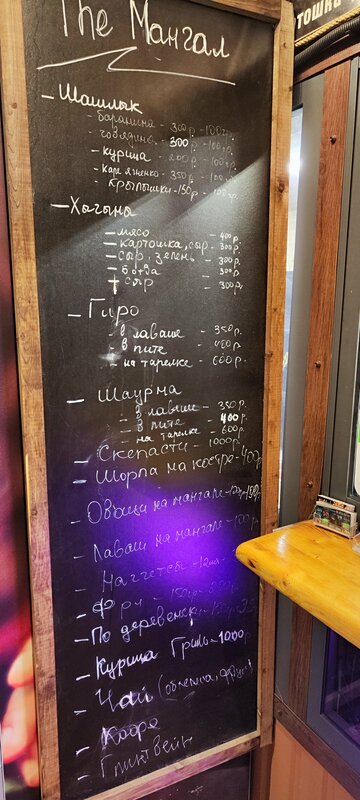 The Мангал
- Шашлык
- баранина - 300р - 100гр.
- говядина - 300р - 100гр.
- курица - 200р - 100гр.
- Каре ягненко - 350р - 100гр.
- Крылышки - 150р - 100гр.
- Хычины
- мясо - 400р.
- картошка, сыр - 300р.
- сыр, зелень - 300р.
- ботва - 300р.
+ сыр - 300р.
- Гиро
- в лаваше - 350р.
- в пите - 400р.
- на тарелке - 600р.
- Шаурма
- в лаваше - 350р.
- в пите - 400р.
на тарелке - 600р.
- Скепасти - 1000р
- Шорпа на костре - 400р
- Овощи на мангале
- Лаваш на мангале - 100р.
- Наггетсы
- Фри - 150гр
- По деревенски
- Курица Гриль - 1000р.
- Чай (облепиха,
- Кофе
- Глинтвейн
тошка